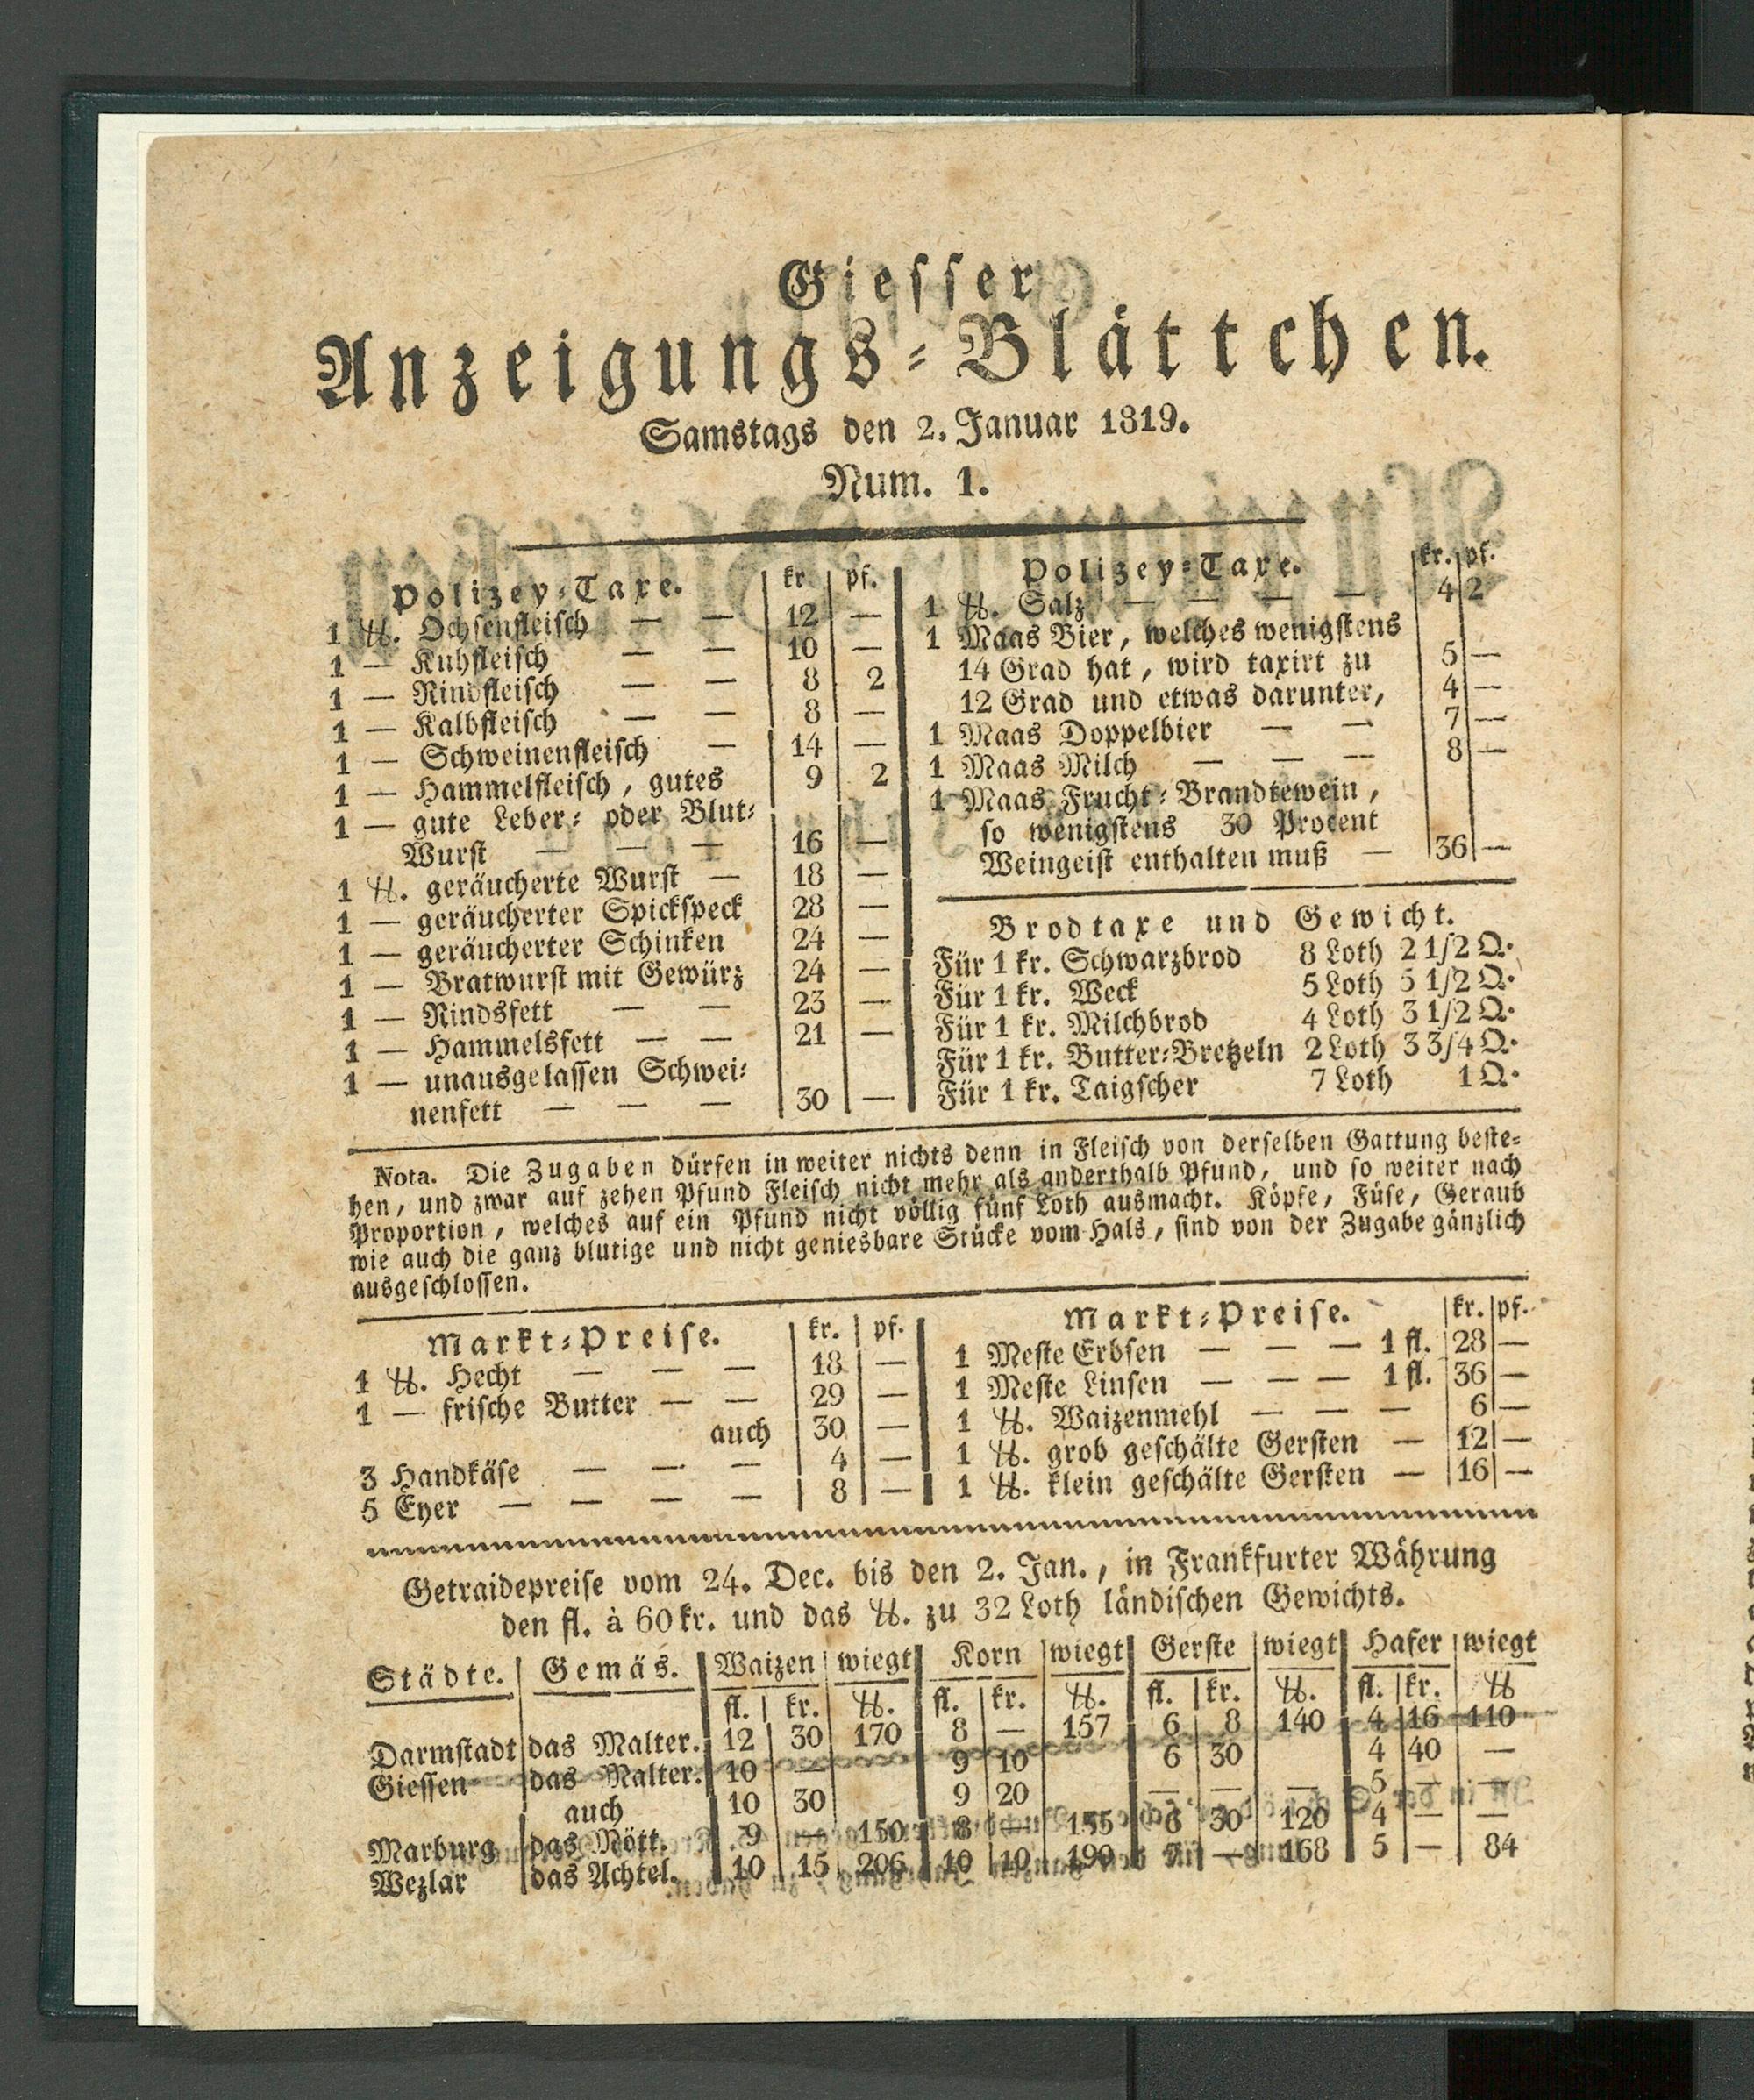 Giesser
Anzeigungs-Blättchen.
Samstags den 2. Januar 1819.
Num. 1.
Polizey-Taxe. kr. pf.
1 ℔. Ochsenfleisch — — 12 —
1 — Kuhfleisch — — 10 —
1 — Rindfleisch — — 8 2
1 — Kalbfleisch — — 8 —
1 — Schweinenfleisch — 14 —
1 — Hammelfleisch, gutes 9 2
1 — gute Leber- oder Blut-
Wurst — — — 16 —
1 ℔. geräucherte Wurst — 18 —
1 — geräucherter Spickspeck 28 —
1 — geräucherter Schinken 24 —
1 — Bratwurst mit Gewürz 24 —
1 — Rindsfett — — 23 —
1 — Hammelsfett — — 21 —
1 — unausgelassen Schwei-
nenfett — — — 30 —
Polizey-Taxe. kr. pf.
1 ℔. Salz — — — — 4 2
1 Maas Bier, welches wenigstens
14 Grad hat, wird taxirt zu 5 —
12 Grad und etwas darunter, 4 —
1 Maas Doppelbier — — 7 —
1 Maas Milch — — — 8 —
1 Maas Frucht-Brandtewein,
so wenigstens 30 Procent
Weingeist enthalten muß — 36 —
Brodtaxe und Gewicht.
Für 1 kr. Schwarzbrod 8 Loth 2 1/2 Q.
Für 1 kr. Weck 5 Loth 5 1/2 Q.
Für 1 kr. Milchbrod 4 Loth 3 1/2 Q.
Für 1 kr. Butter-Bretzeln 2 Loth 3 3/4 Q.
Für 1 kr. Taigscher 7 Loth 1 Q.
Nota. Die Zugaben dürfen in weiter nichts denn in Fleisch von derselben Gattung beste-
hen, und zwar auf zehen Pfund Fleisch nicht mehr als anderthalb Pfund, und so weiter nach
Proportion, welches auf ein Pfund nicht völlig fünf Loth ausmacht. Köpfe, Füse, Geraub
wie auch die ganz blutige und nicht geniesbare Stücke vom Hals, sind von der Zugabe gänzlich
ausgeschlossen.
Markt-Preise. kr. pf.
1 ℔. Hecht — — — 18 —
1 — frische Butter — — 29 —
auch 30 —
3 Handkäse — — — 4 —
5 Eyer — — — — 8 —
Markt-Preise. kr. pf.
1 Meste Erbsen — — — 1 fl. 28 —
1 Meste Linsen — — — 1 fl. 36 —
1 ℔. Waizenmehl — — — 6 —
1 ℔. grob geschälte Gersten — 12 —
1 ℔. klein geschälte Gersten — 16 —
Getraidepreise vom 24. Dec. bis den 2. Jan., in Frankfurter Währung
den fl. à 60 kr. und das ℔. zu 32 Loth ländischen Gewichts.
Städte. Gemäs. Waizen wiegt Korn wiegt Gerste wiegt Hafer wiegt
fl. kr. ℔. fl. kr. ℔. fl. kr. ℔. fl. kr. ℔
Darmstadt das Malter. 12 30 170 8 — 157 6 8 140 4 16 110
Giessen das Malter. 10 — 9 10 6 30 4 40 —
auch 10 30 9 20 — — — 5 — —
Marburg das Mött. 9 — 150 8 — 155 6 30 120 4 — —
Wezlar das Achtel. 10 15 206 10 10 190 7 — 168 5 — 84